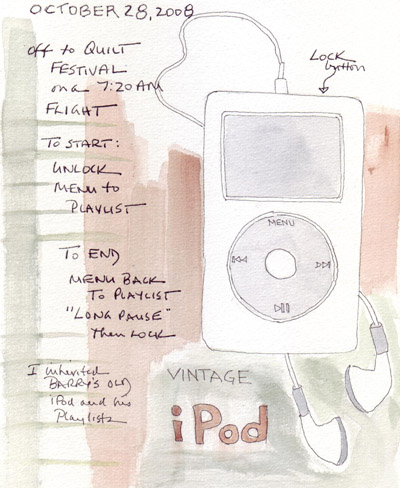 OCTOBER 28, 2008
off to QUILT
FESTIVAL
on a 7:20 AM
FLIGHT
LOCK
button
TO START:
UNLOCK
MENU to
PLAYLIST
TO END
MENU BACK
TO PLAYLIST
"LONG PAUSE"
then LOCK
I inherited
BARRY'S OLD
iPod and his
Playlists
MENU
VINTAGE
iPod